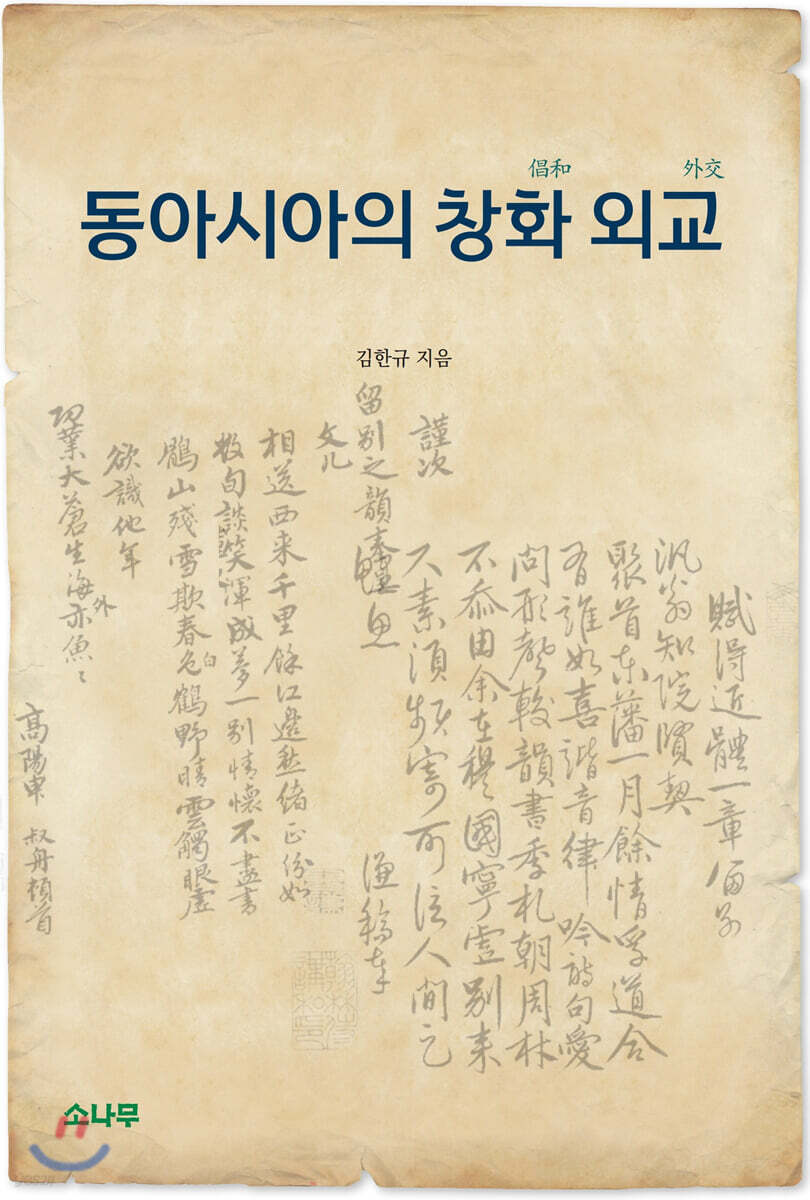 倡和 外交
동아시아의 창화 외교
김한규 지음
賦得近體一章留別
汎翁知院賢契
聚首東藩一月餘情孚道合
有誰如喜諧音律吟詩句愛
問形聲較韻書季札朝周林
不忝由余在穆國寧虛別来
尺素須頻寄可任人間乏
鯉魚
謙稿奉
謹次
留別之韻奉
文几
相送西来千里餘江邊愁緒正紛如
数旬談笑渾成夢一别情懷不盡書
鶻山殘雪欺春白鶴野晴雲觸眼虛
欲識他年
功業大蒼生海外亦魚〻
高陽申 叔舟頓首
소나무